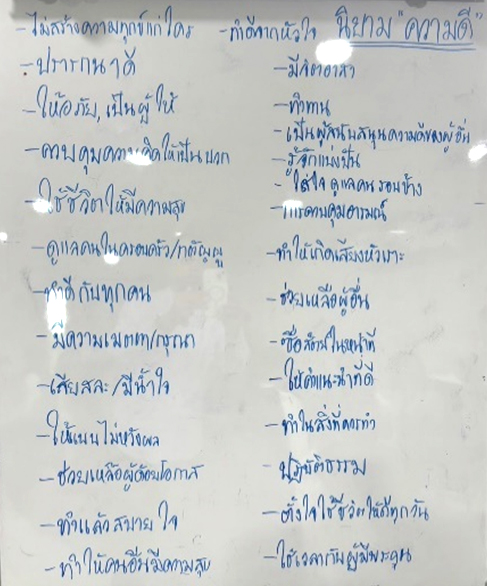 นิยาม "ความดี"
-ไม่สร้างความทุกข์แก่ใคร
-ปรารถนาดี
-ให้อภัย, เป็นผู้ให้
-ควบคุมความคิดให้เป็นบวก
-ใช้ชีวิตให้มีความสุข
-ดูแลคนในครอบครัว/กตัญญู
-ทำดีกับทุกคน
-มีความเมตตา/กรุณา
-เสียสละ/มีน้ำใจ
-ให้แบบไม่หวังผล
-ช่วยเหลือผู้ด้อยโอกาส
-ทำแล้วสบายใจ
-ทำให้คนอื่นมีความสุข
-ทำดีจากหัวใจ
-มีจิตอาสา
-ทำทาน
-เป็นผู้สนับสนุนความดีของผู้อื่น
-รู้จักแบ่งปัน
-ใส่ใจ ดูแลคนรอบข้าง
-การควบคุมอารมณ์
-ทำให้เกิดเสียงหัวเราะ
-ช่วยเหลือผู้อื่น
-ซื่อสัตย์ในหน้าที่
-ให้คำแนะนำที่ดี
-ทำในสิ่งที่ควรทำ
-ปฏิบัติธรรม
-ตั้งใจใช้ชีวิตให้ดีทุกวัน
-ใช้เวลากับผู้มีพระคุณ